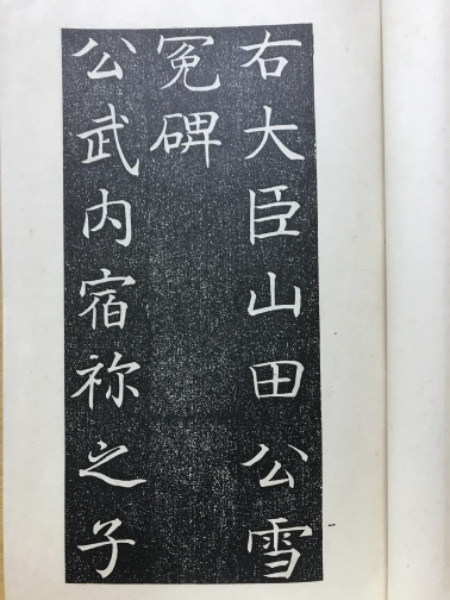 右大臣山田公雪
冤碑
公武内宿祢之子